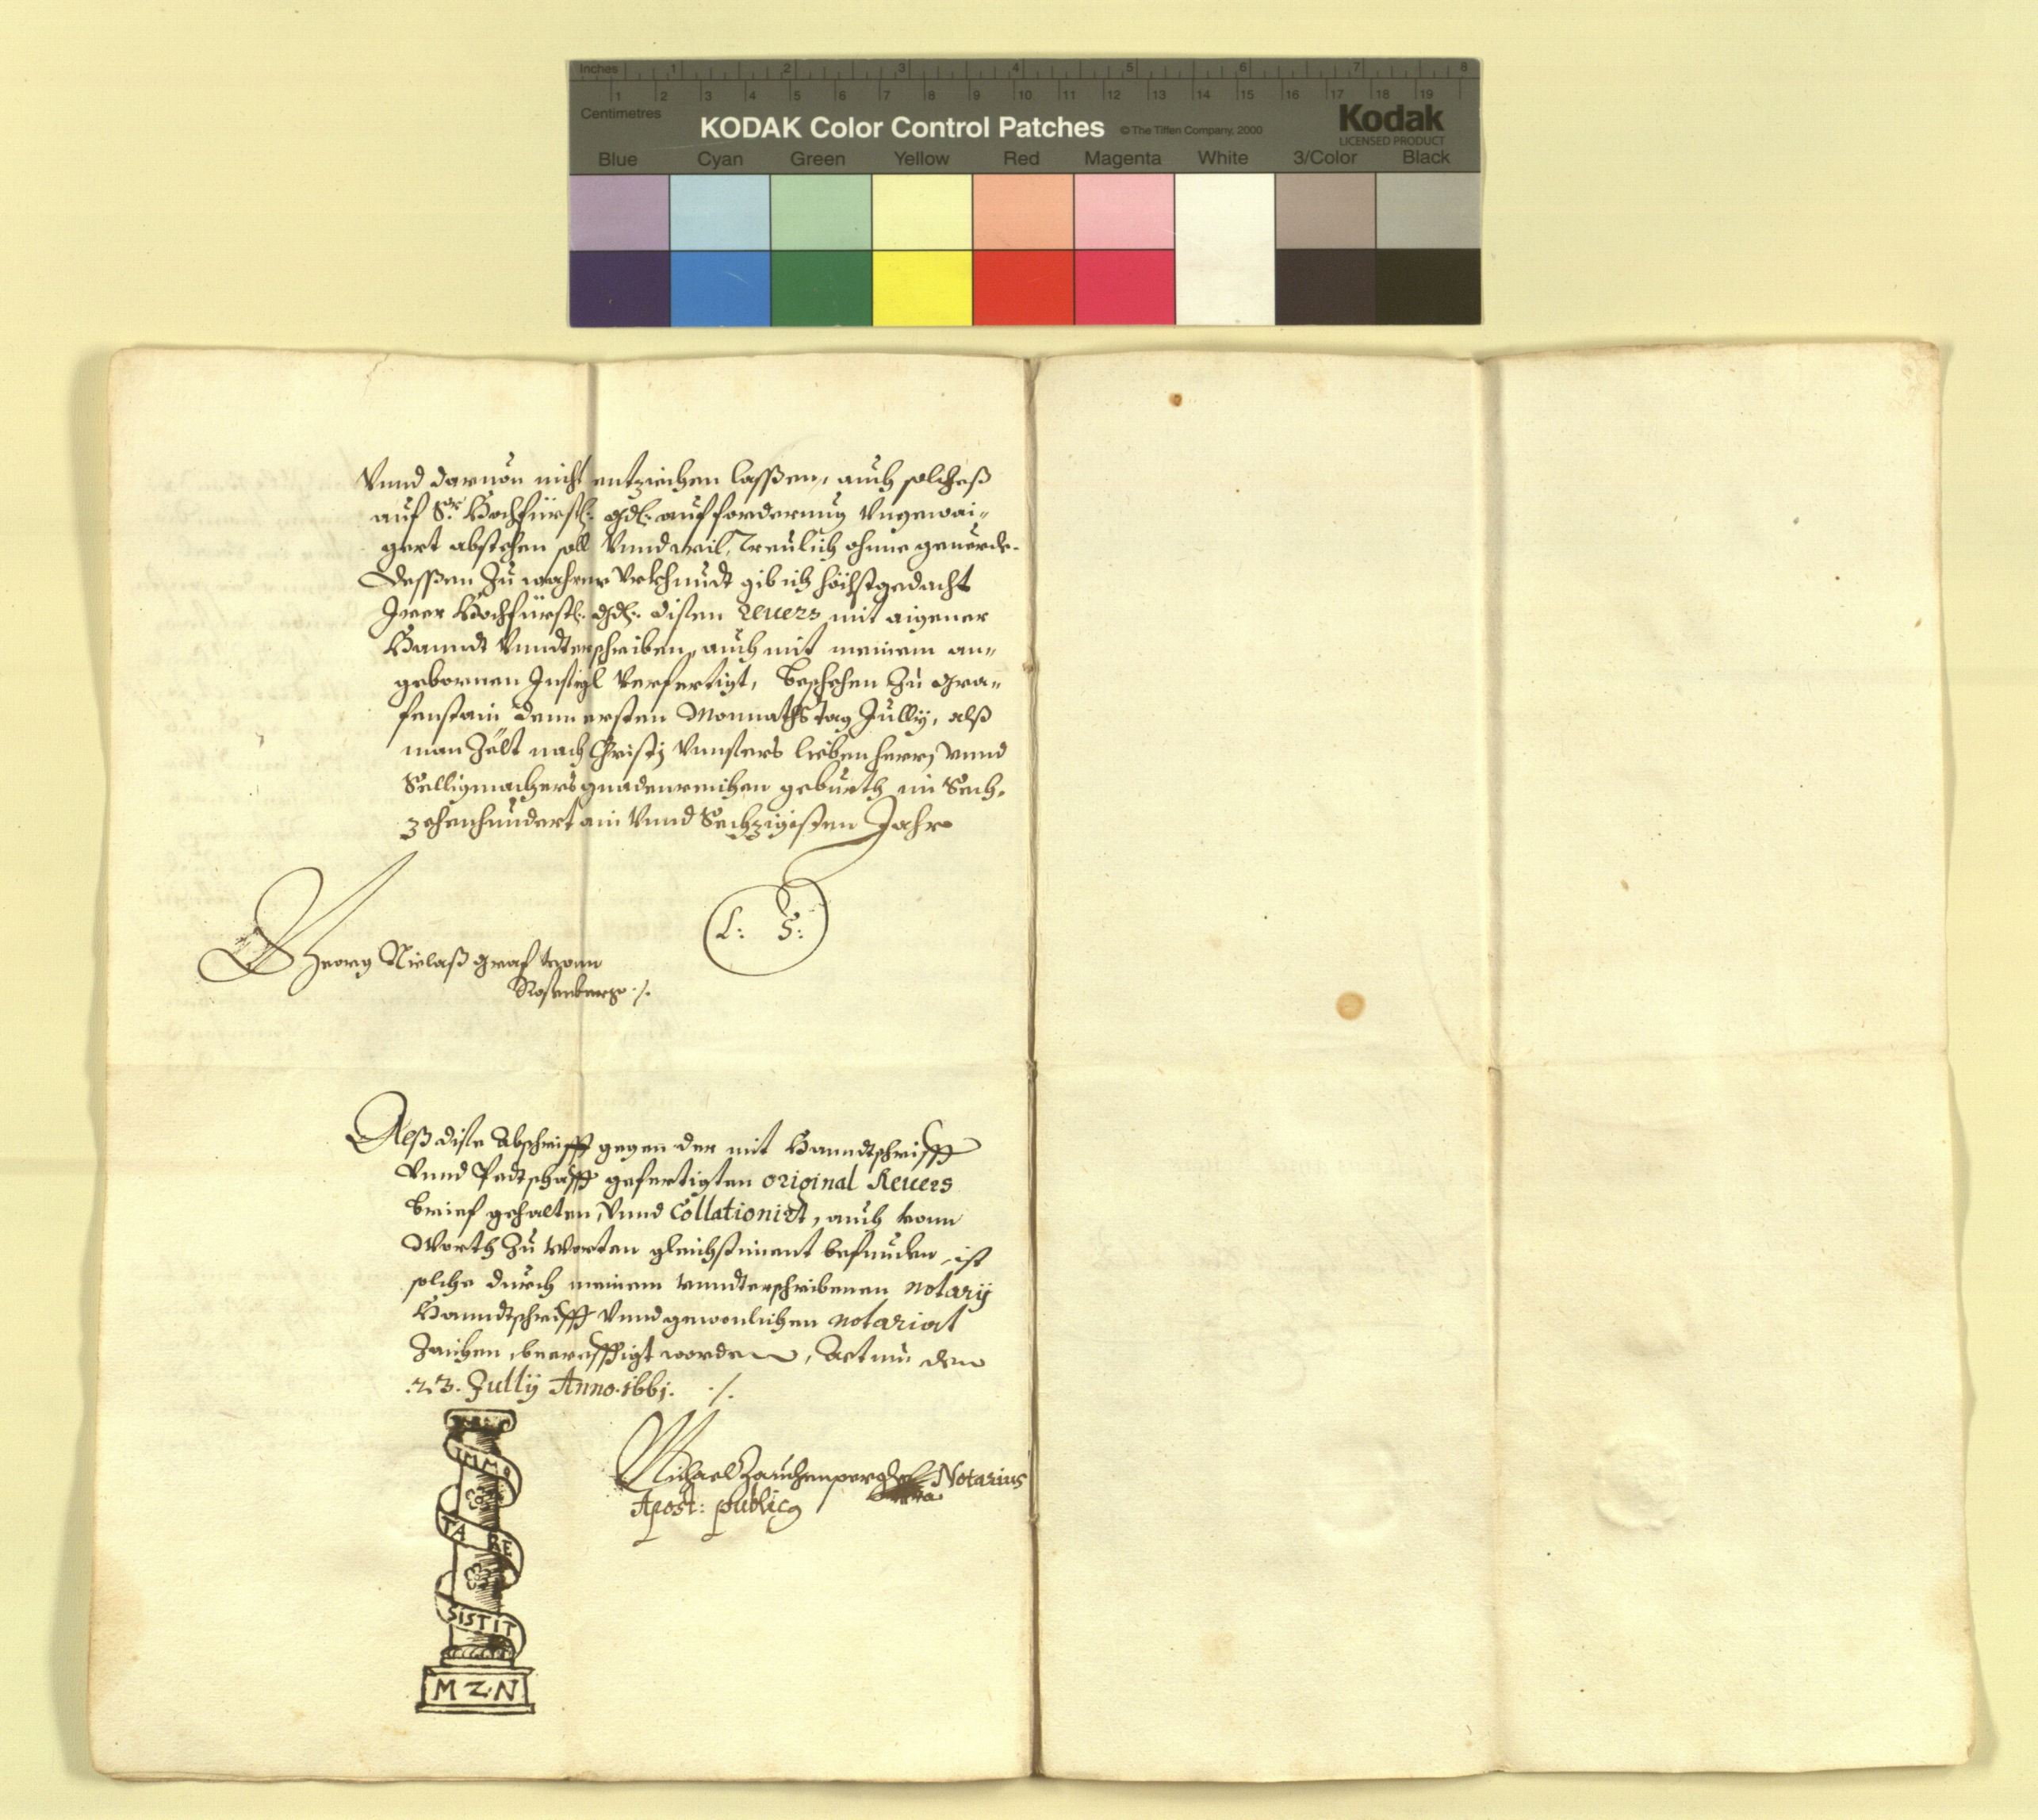 Inches 1 2 3 4 5 6 7 8
1 2 3 4 5 6 7 8 9 10 11 12 13 14 15 16 17 18 19
Centimetres
KODAK Color Control Patches © The Tiffen Company, 2000 Kodak
LICENSED PRODUCT
Blue Cyan Green Yellow Red Magenta White 3/Color Black
Vnnd daruon nicht entziehen lassßen, auch solcheß
auf Sr. Hochfürstl: gdl: aufforderung Vngewai„
gert abstehen soll Vnnd wil, Treulich ohnne geuerde.
Dessßen Zu wahrer Vrkhundt gib ich höchstgedacht
Irer Hochfürstl: gdl: disen Reuers mit aigener
Hanndt Vnndterschriben, auch mit meinem an„
gebornen Insigl Verfertigt, Beschehen Zu Gra„
fenstain denn ersten Monnathstag Jullÿ, alß
man Zält nach Christj Vnnsers lieben herrn Vnnd
Selligmachers gnadenreichen geburth im Sech„
zehenhundert ain Vnnd Sechzigisten Jahr
L: S:
Georg Niclaß Graf vonn
Rosenberg ./.
Alß dise Abschrifft gegen der mit Hanndtschrifft
Vnnd Pedtschafft gefertigten original Reuers
brief gehalten, Vnnd Collationirt, auch vonn
Worth Zu Worten gleichstiment befunden, ist
solche durch meinem vnndterschribenen notarÿ
Hanndtschrifft Vnnd gewonlichen notariat
Zaichen becrefftigt worden, Actum den
23. Jullÿ Anno. 1661. ./.
Michael Zauchenperger Notarius
Apost: publicq
IMMO
TA
RE
SISTIT
M Z N